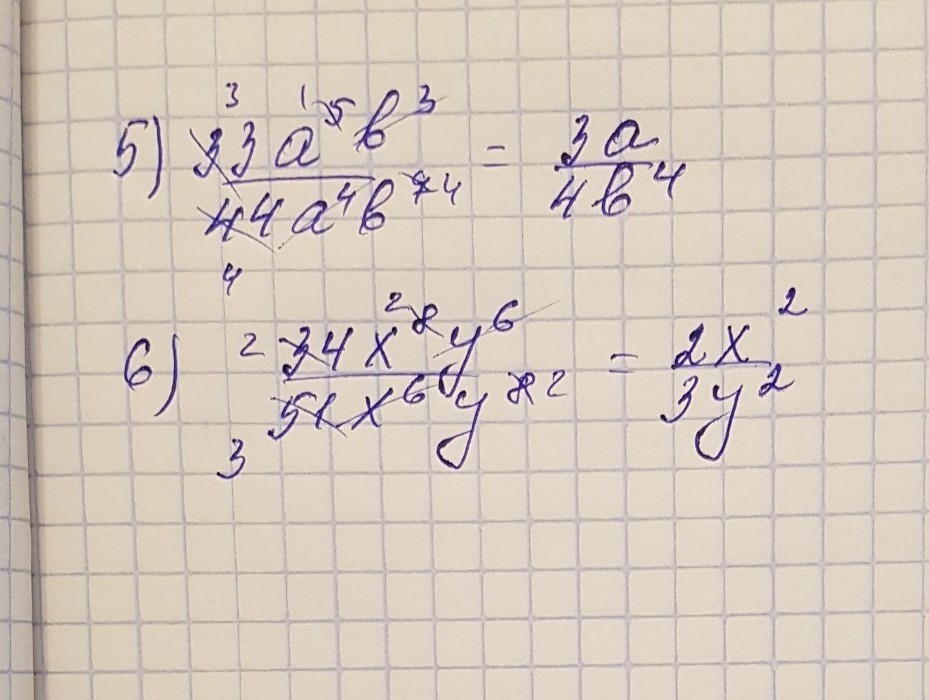 3 1
5) 33a⁵b³ / 44a⁴b⁷ 4 = 3a / 4b⁴
4
6) 2 34x⁸ 2 y⁶ / 51x⁶y⁸ 2 = 2x² / 3y²
3